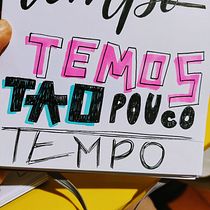 tempo
TEMOS
TAO POUCO
TEMPO